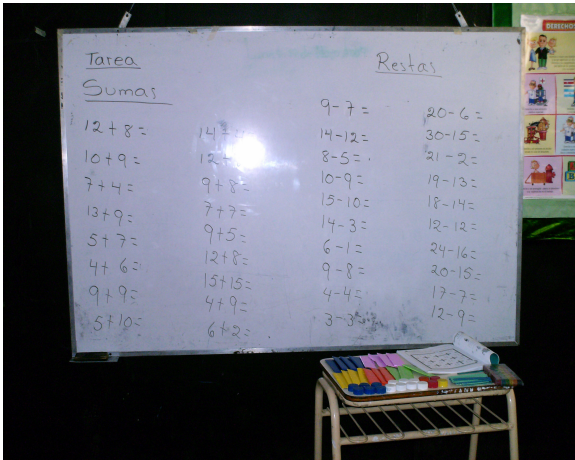 Tarea
Sumas
12+8=
10+9=
7+4=
13+9=
5+7=
4+6=
9+9=
5+10=
14
12+
9+8=
7+7=
9+5=
12+8=
15+15=
4+9=
6+2=
Restas
9-7=
14-12=
8-5=
10-9=
15-10=
14-3=
6-1=
9-8=
4-4=
3-3=
20-6=
30-15=
21-2=
19-13=
18-14=
12-12=
24-16=
20-15=
17-7=
12-9=
DERECHOS